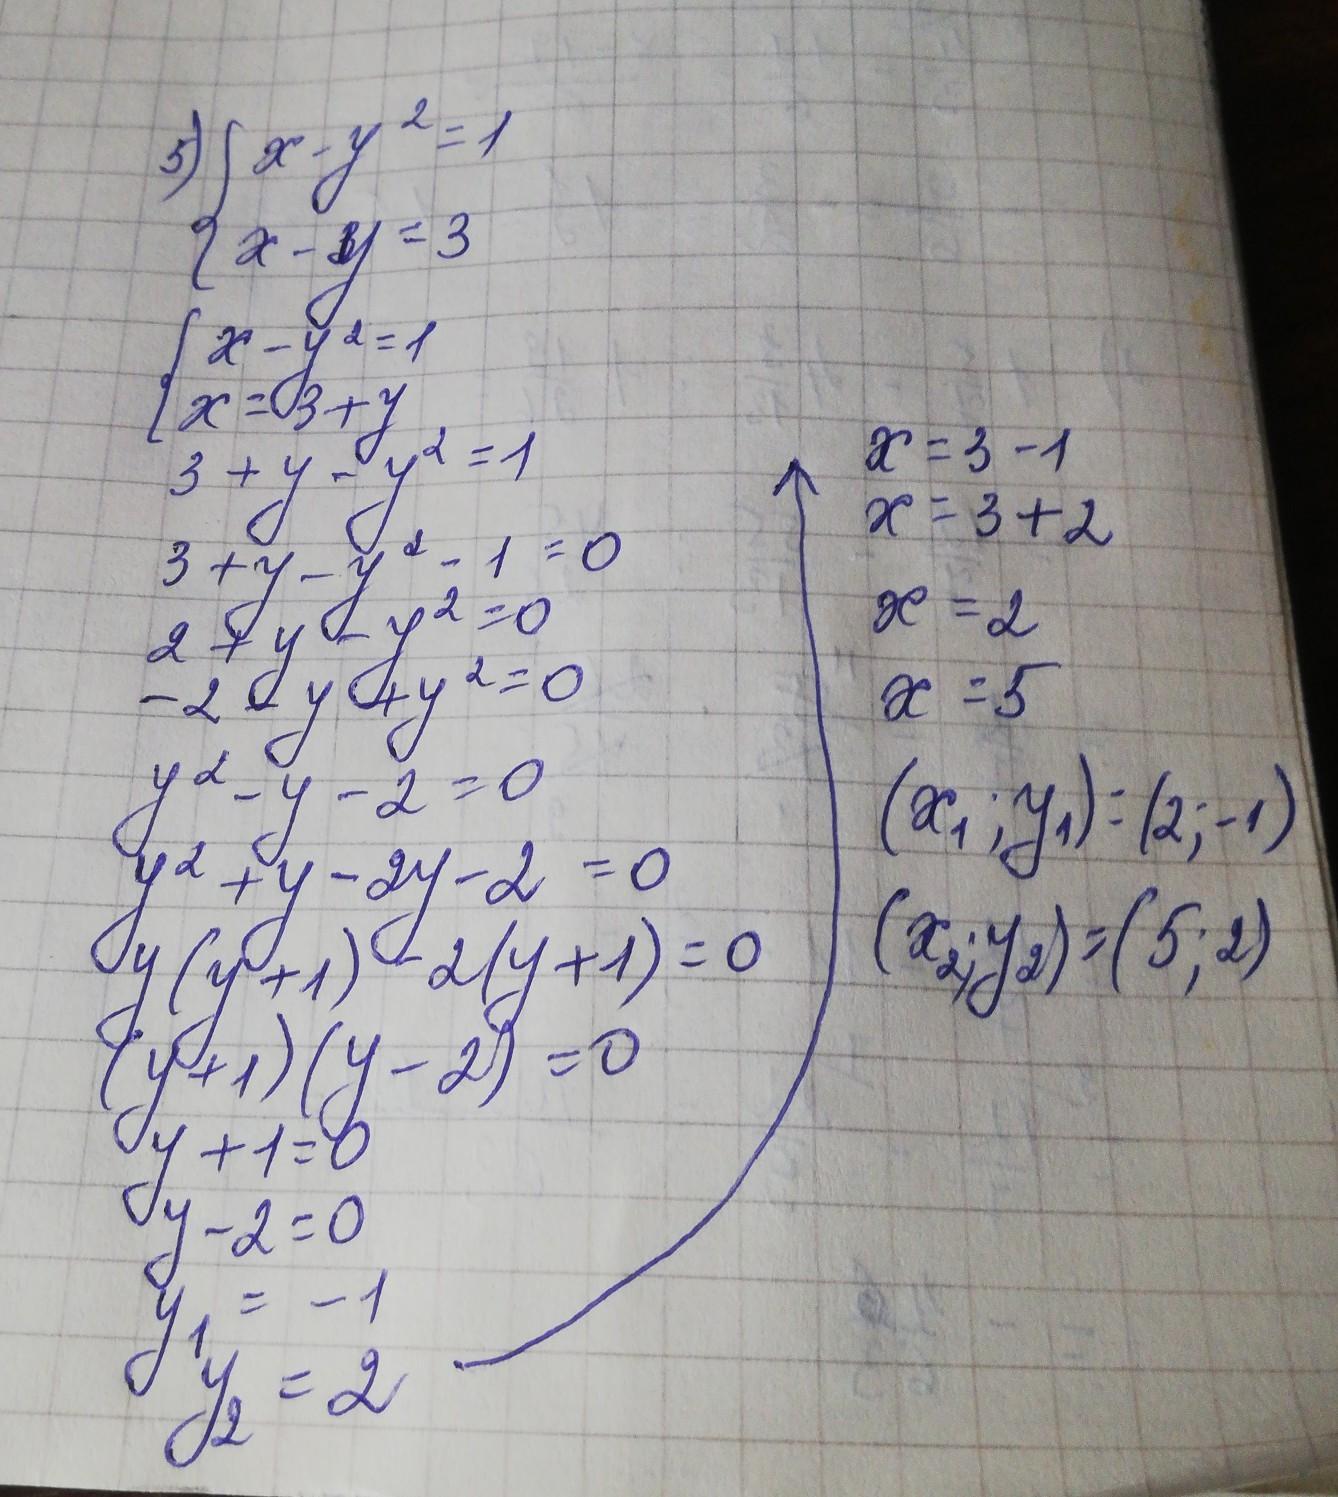 5) { x - y² = 1
x - y = 3
{ x - y² = 1
x = 3 + y
3 + y - y² = 1
3 + y - y² - 1 = 0
2 + y - y² = 0
-2 - y + y² = 0
y² - y - 2 = 0
y² + y - 2y - 2 = 0
y(y+1) - 2(y+1) = 0
(y+1)(y-2) = 0
y + 1 = 0
y - 2 = 0
y₁ = -1
y₂ = 2
x = 3 - 1
x = 3 + 2
x = 2
x = 5
(x₁; y₁) = (2; -1)
(x₂; y₂) = (5; 2)